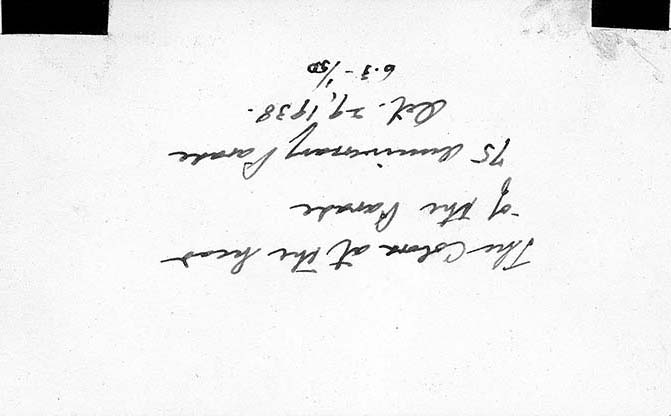 The Colors at the head
of the Parade
75 Anniversary Parade
Oct. 29, 1938.
6.3 - 1/50